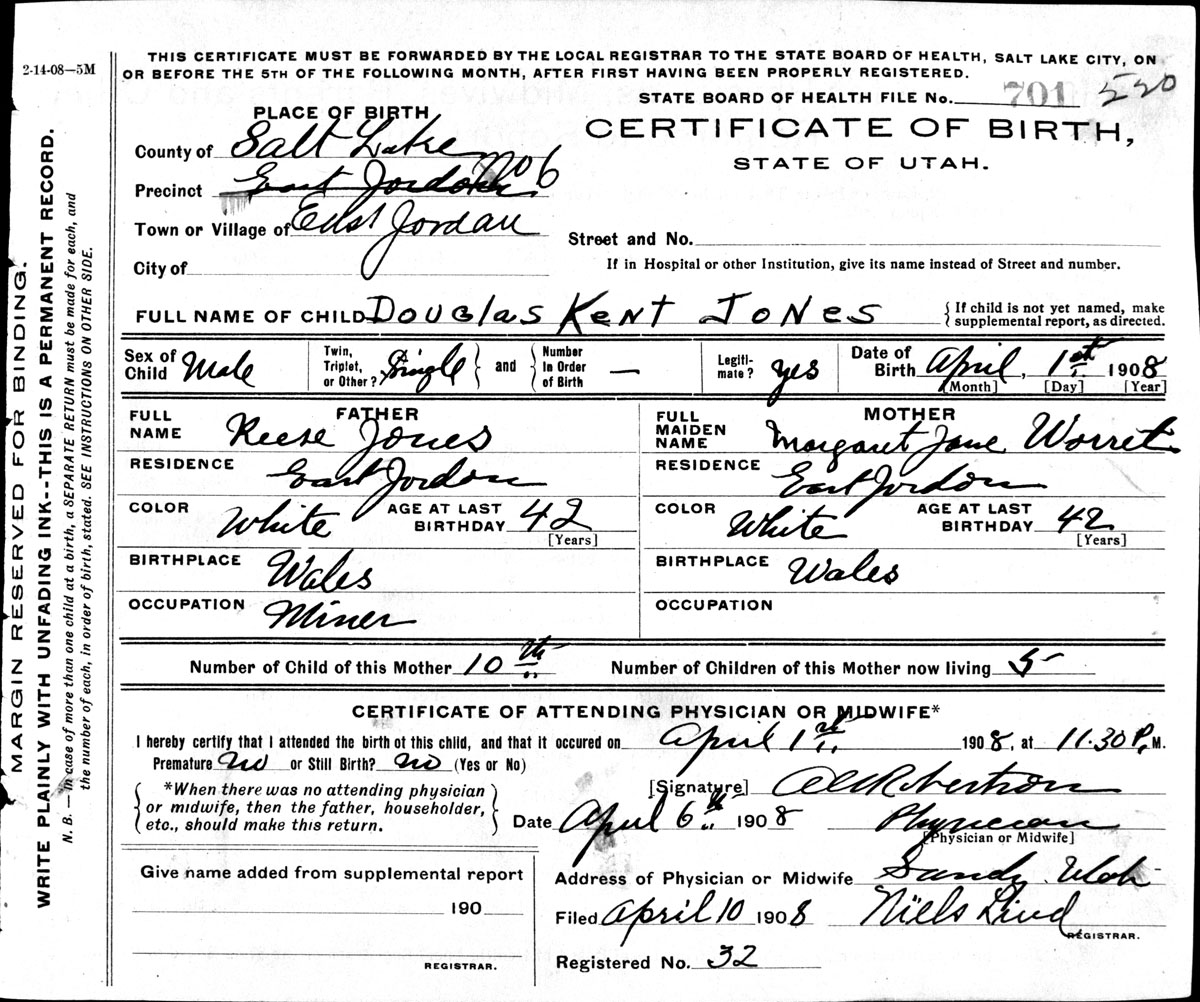 2-14-08—5M
THIS CERTIFICATE MUST BE FORWARDED BY THE LOCAL REGISTRAR TO THE STATE BOARD OF HEALTH, SALT LAKE CITY, ON
OR BEFORE THE 5TH OF THE FOLLOWING MONTH, AFTER FIRST HAVING BEEN PROPERLY REGISTERED.
STATE BOARD OF HEALTH FILE No. 701 520
PLACE OF BIRTH
CERTIFICATE OF BIRTH,
STATE OF UTAH.
County of Salt Lake
Precinct East Jordon No 6
Town or Village of East Jordan
Street and No.
City of
If in Hospital or other Institution, give its name instead of Street and number.
FULL NAME OF CHILD Douglas Kent Jones
{ If child is not yet named, make
supplemental report, as directed.
Sex of Child Male
Twin, Triplet, or Other? Single } and { Number In Order of Birth —
Legiti-mate? yes
Date of Birth April, 1st 1908
[Month] [Day] [Year]
FATHER
FULL NAME Reese Jones
RESIDENCE East Jordon
COLOR White AGE AT LAST BIRTHDAY 42
[Years]
BIRTHPLACE Wales
OCCUPATION Miner
MOTHER
FULL MAIDEN NAME Margaret Jane Worret
RESIDENCE East Jordon
COLOR White AGE AT LAST BIRTHDAY 42
[Years]
BIRTHPLACE Wales
OCCUPATION
Number of Child of this Mother 10th Number of Children of this Mother now living 5
CERTIFICATE OF ATTENDING PHYSICIAN OR MIDWIFE*
I hereby certify that I attended the birth of this child, and that it occured on April 1st 1908, at 11.30 P.M.
Premature No or Still Birth? No (Yes or No)
{ *When there was no attending physician
or midwife, then the father, householder,
etc., should make this return. }
[Signature] Robertson
Date April 6th 1908 Physician
[Physician or Midwife]
Give name added from supplemental report
190
REGISTRAR.
Address of Physician or Midwife Sandy Utah
Filed April 10 1908 Niels Lind
REGISTRAR.
Registered No. 32
MARGIN RESERVED FOR BINDING.
WRITE PLAINLY WITH UNFADING INK--THIS IS A PERMANENT RECORD.
N. B. — In case of more than one child at a birth, a SEPARATE RETURN must be made for each, and
the number of each, in order of birth, stated. SEE INSTRUCTIONS ON OTHER SIDE.